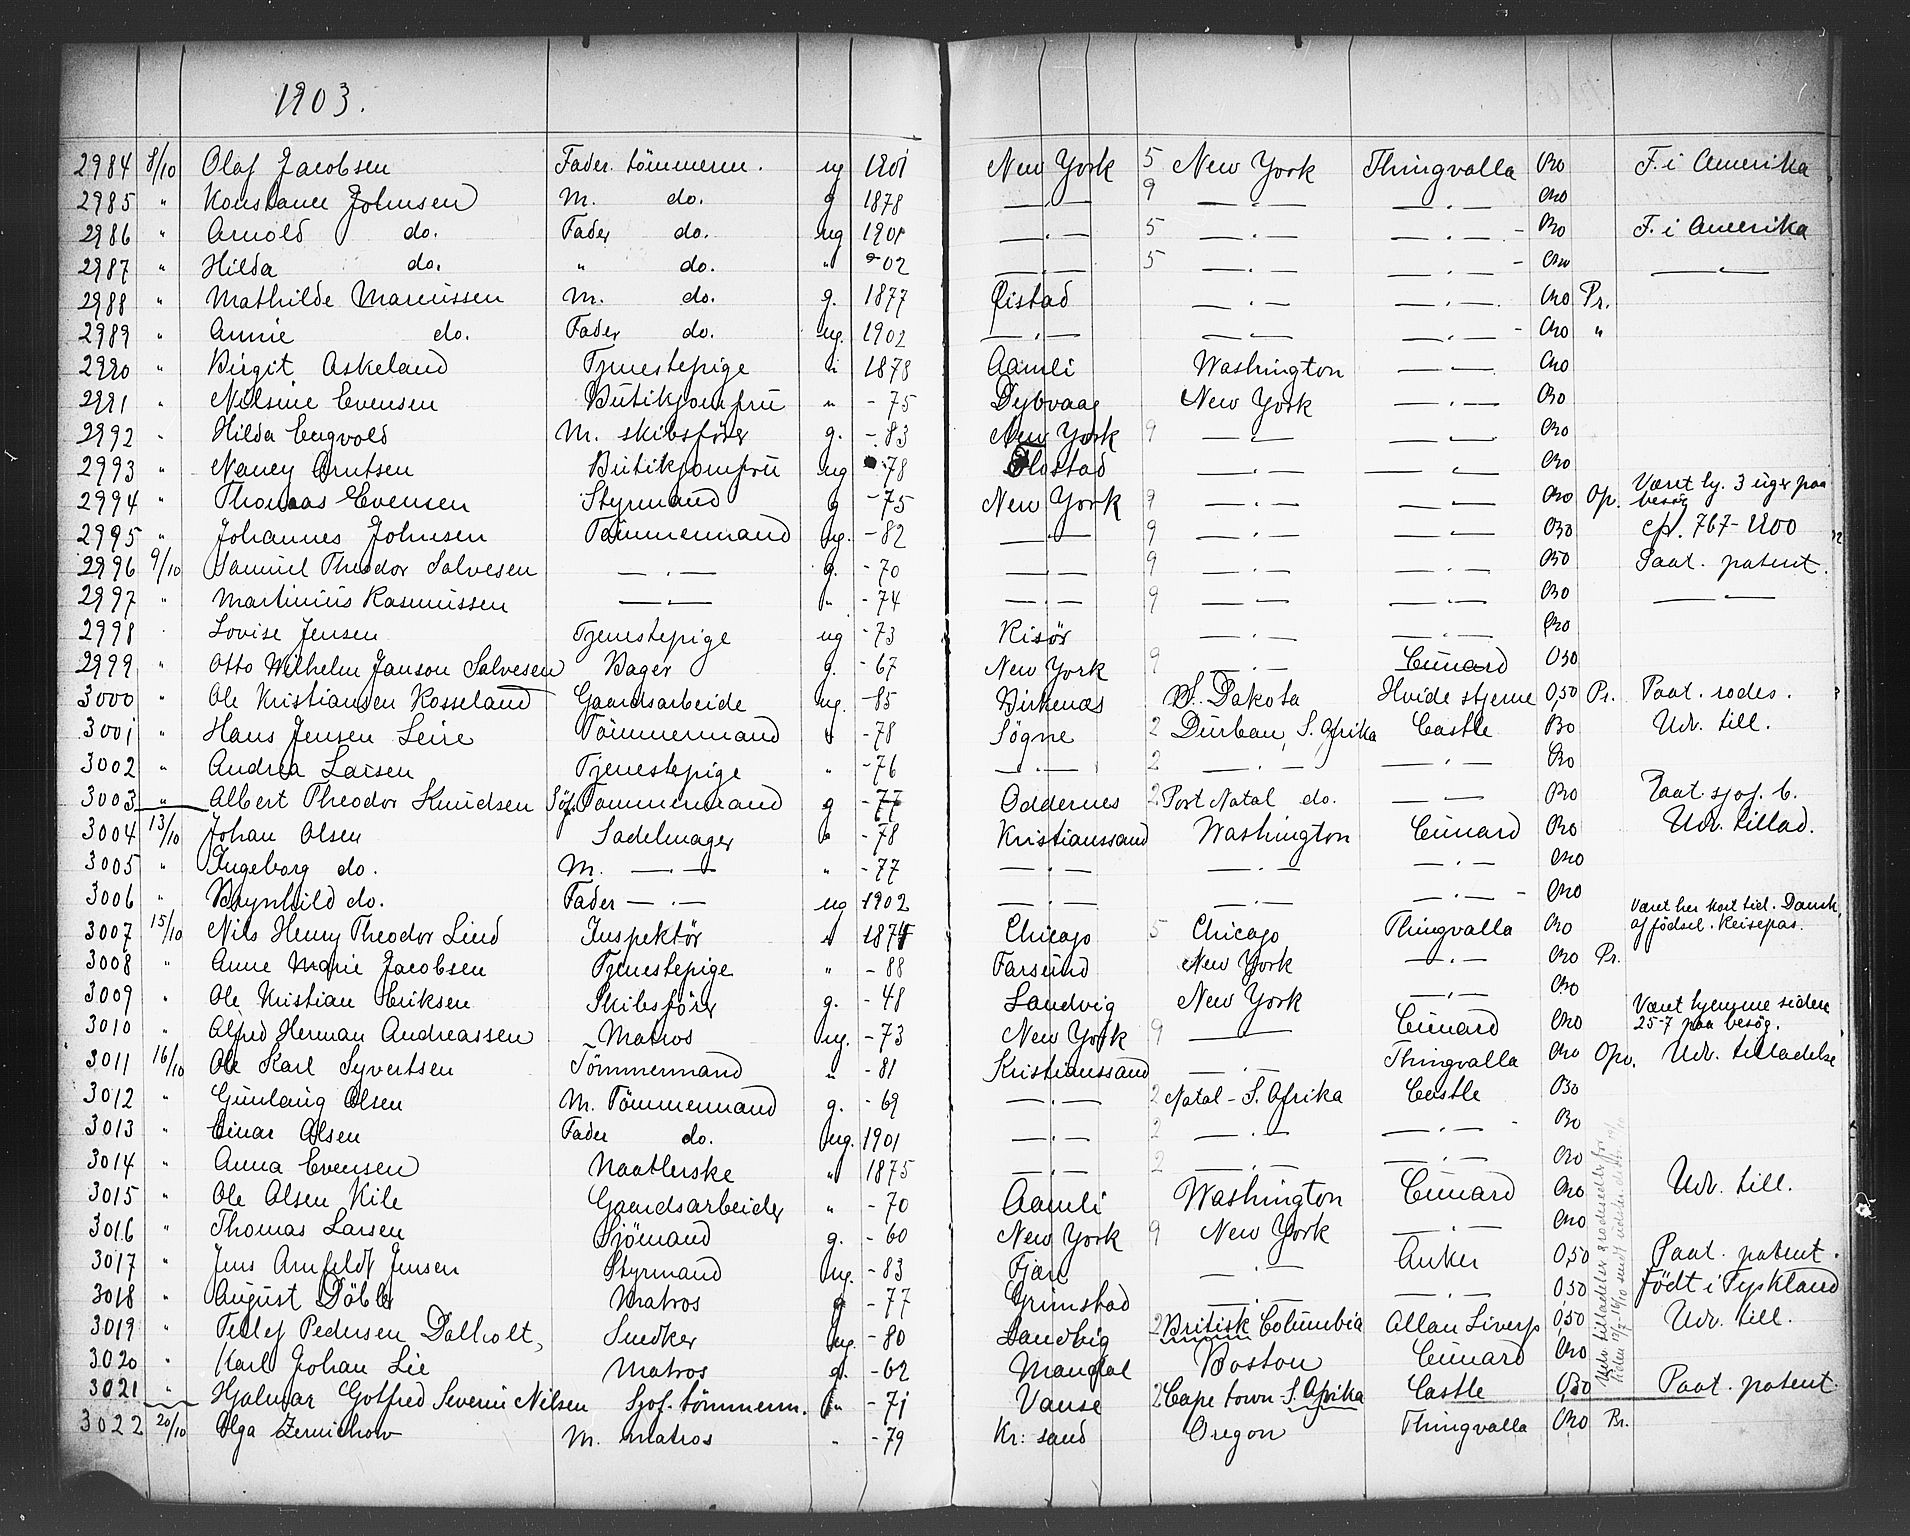 1903.
2984 8/10 Olaf Jacobsen Fader tömmerm. ug 1901 New York 5 New York Thingvalla F. i Amerika
2985 " Konstance Johnsen M. do. g 1878 — . — 9 — . — — . —
2986 " Arnold do. Fader do. ug 1901 — . — 5 — . — — . — F. i Amerika
2987 " Hilda do. " do. " -02 — . — 5 — . — — . — — " —
2988 " Mathilde Marcussen M. do. g. 1877 Öistad — . — — . — Pr.
2989 " Annie do. Fader do. ug. 1902 — . — — . — — . — "
2990 " Birgit Askeland Tjenestepige " 1878 Aamli Washington — . —
2991 " Nilsine Evensen Butikjomfru " -75 Dybvaag New York — . —
2992 " Hilda Engvold M. skibsfører g. -83 New York 9 — . — — . —
2993 " Nancy Arntsen Butikjomfru ug -78 Flostad — . — — . —
2994 " Thomas Evensen Styrmand g -75 New York 9 — . — — . — Op. Været hj. 3 uger paa besøg
2995 " Johannes Johnsen Tømmermand ug. -82 — . — 9 — . — — . — cfr. 767-1900
2996 9/10 Samuel Theodor Salvesen — . — g. -70 — . — 9 — . — — . — Paat. patent.
2997 " Martinius Rasmussen — . — " -74 — . — 9 — . — — . — — " —
2998 " Lovise Jensen Tjenestepige ug -73 Risör — . — — . —
2999 " Otto Wilhelm Janson Salvesen Bager g. -67 New York 9 — . — Cunard
3000 " Ole Kristiansen Rosseland Gaardsarbeide ug. -85 Birkenæs S. Dakota Hvide stjerne 0,50 Pr. Paat. rodes.
3001 " Hans Jensen Leire Tömmermand " -78 Søgne 2 Durban, S. Afrika Castle Udv. till.
3002 " Andrea Larsen Tjenestepige " -76 — . — 2 — . — — . —
3003 " Albert Theodor Knudsen Söf. Tömmermand g -77 Oddernes 2 Port Natal do. — . — Paat. sjof. b.
3004 13/10 Johan Olsen Sadelmager " -78 Kristianssand Washington Cunard Udv. tillad.
3005 " Ingeborg do. M. — . — " -77 — . — — . — — . —
3006 " Brynhild do. Fader — . — ug 1902 — . — — . — — . —
3007 15/10 Nils Henry Theodor Lind Inspektör " 1874 Chicago 5 Chicago Thingvalla Været her kort tid. Dansk af födsel. Reisepas.
3008 " Anne Marie Jacobsen Tjenestepige " -88 Farsund New York — . — Pr.
3009 " Ole Kristian Eriksen Skibsförer g. -48 Landvig New York — . —
3010 " Alfred Herman Andreassen Matros ug. -73 New York 9 — Cunard Været hjemme siden 25-7 paa besøg.
3011 16/10 Ole Karl Syvertsen Tömmermand " -81 Kristianssand — . — Thingvalla Opv. Udv. tilladelse
3012 " Gunlaug Olsen M. Tömmermand g. -69 — . — 2 Natal - S. Afrika Castle
3013 " Einar Olsen Fader do. ug. 1901 — . — 2 — . — — . —
3014 " Anna Evensen Naatlerske " 1875 — . — 2 — . — — . —
3015 " Ole Olsen Kile Gaardsarbeider " -70 Aamli Washington Cunard Udv. till.
3016 " Thomas Larsen Sjömand g. -60 New York 9 New York — . —
3017 " Jens Arnfeldt Jensen Styrmand ug. -83 Fjære — . — Anker 0,50 Paat. patent.
3018 " August Döbler Matros g -77 Grimstad — . — — . — 0,50 Födt i Tyskland
3019 " Tellef Pedersen Dalholt, Snedker ug. -80 Landvig 2 Britisk Columbia Allan Liverp 0,50 Udv. till.
3020 " Karl Johan Lie Matros g. -62 Mandal Boston Cunard
3021 " Hjalmar Gotfred Severin Nilsen Sjof. tömmerm. " -71 Vanse 2 Cape town S. Afrika Castle Paat. patent
3022 20/10 Olga Zernichow M. matros " -79 Kr: sand Oregon Thingvalla Pr.